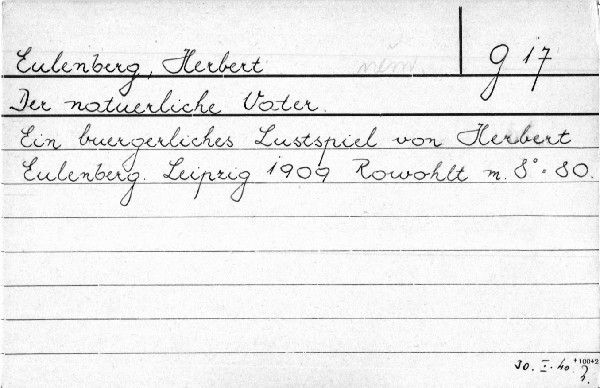 Eulenberg, Herbert
G 17
Der natuerliche Vater.
Ein buergerliches Lustspiel von Herbert
Eulenberg. Leipzig 1909 Rowohlt m. 8°. 80.
30. I. 40.